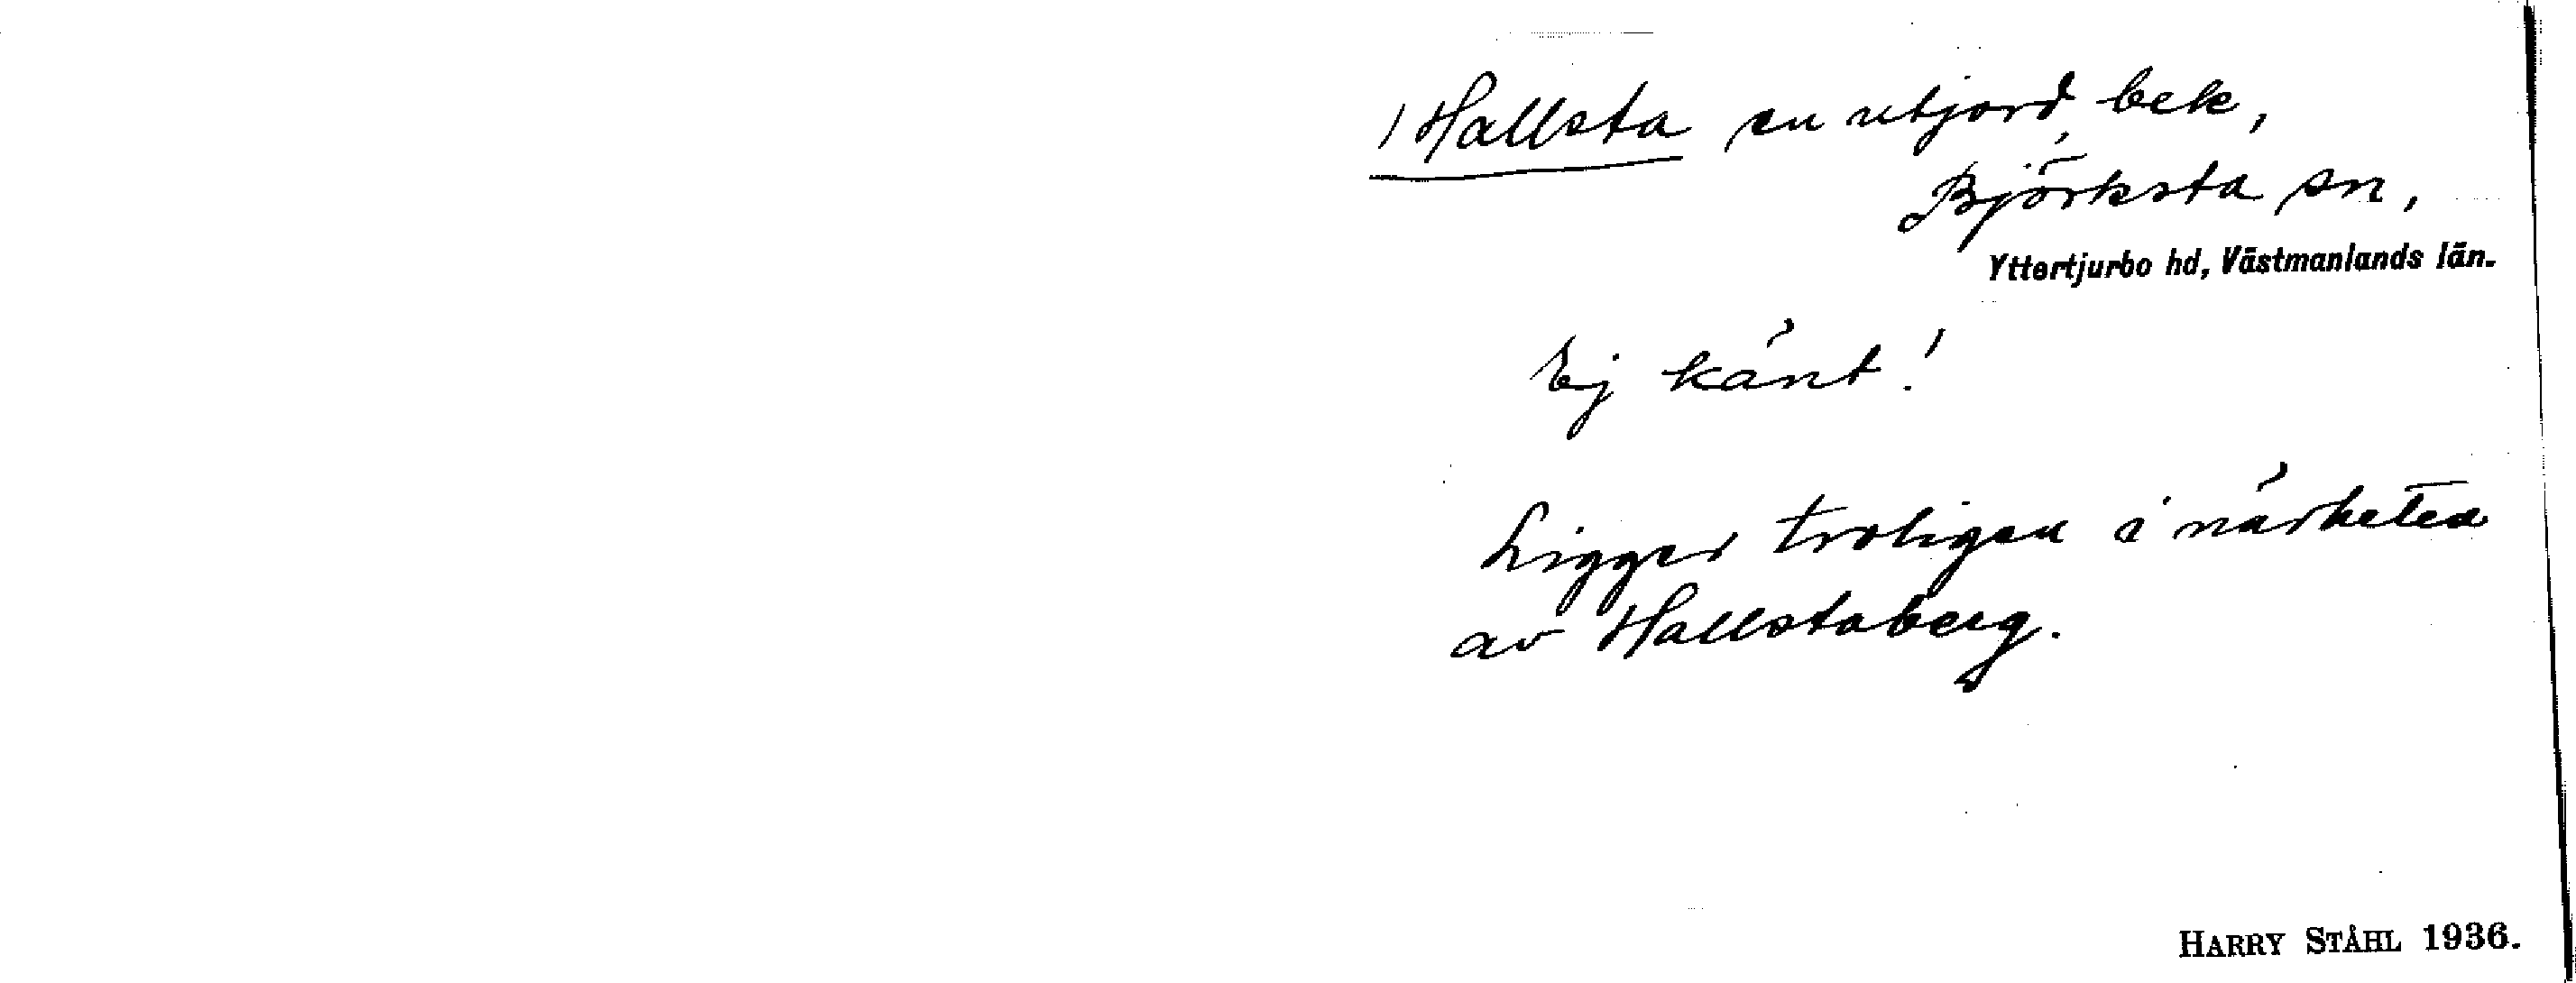 / Hallsta en utjord, bek,
Björksta sn,
Yttertjurbo hd, Västmanlands län.
Ej känt!
Ligger troligen i närheten
av Hallstaberg.
HARRY STÅHL 1936.